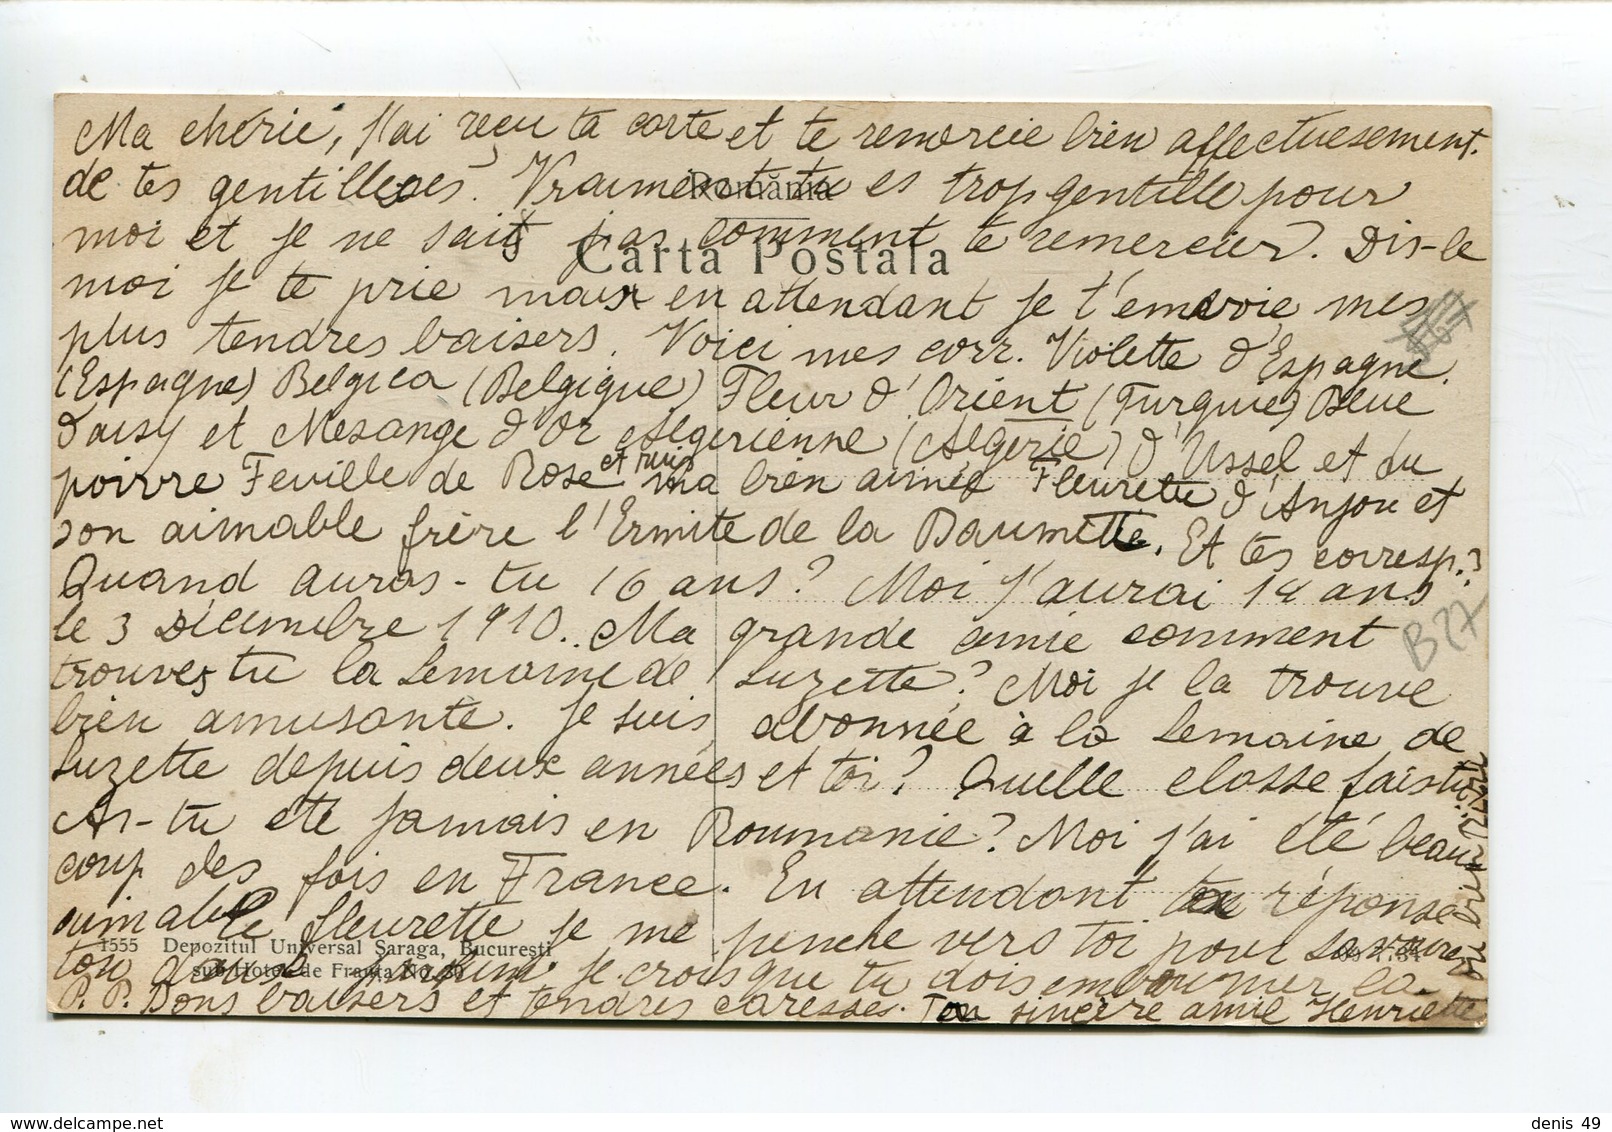 Ma cherie, j'ai reçu ta carte et te remercie bien affectueusement.
de tes gentillesses. Vraiment tu es trop gentille pour
România
moi et je ne sais pas comment te remercier. Dis-le
Carta Postala
moi je te prie mais en attendant je t'envoie mes
plus tendres baisers. Voici mes corr. Violette d'Espagne.
(Espagne) Belgica (Belgique) Fleur d'Orient (Turquie) Bleue
Daisy et Mesange d'Or Algerienne (Algérie) d'Ussel et du
poivre Feuille de Rose et puis ma bien aimée Fleurette d'Anjou et
son aimable frère l'Ermite de la Baumette. Et tes corresp.?
Quand auras-tu 16 ans? Moi j'aurai ans
le 3 Décembre 1910. Ma grande amie comment
trouves tu la Semaine de Suzette? Moi je la trouve
bien amusante. Je suis abonnée à la Semaine de
Suzette depuis deux années et toi? Quelle classe fais tu
As-tu été jamais en Roumanie? Moi j'ai été beau
coup des fois en France. En attendant ta réponse
aimable fleurette je me penche vers toi pour
1555 Depozitul Universal Șaraga, București
sub Hotel de Franța No. 30
ton je crois que tu dois embaumer la
P.P. Bons baisers et tendres caresses. Ta sincère amie Henriette
B27
denis 49